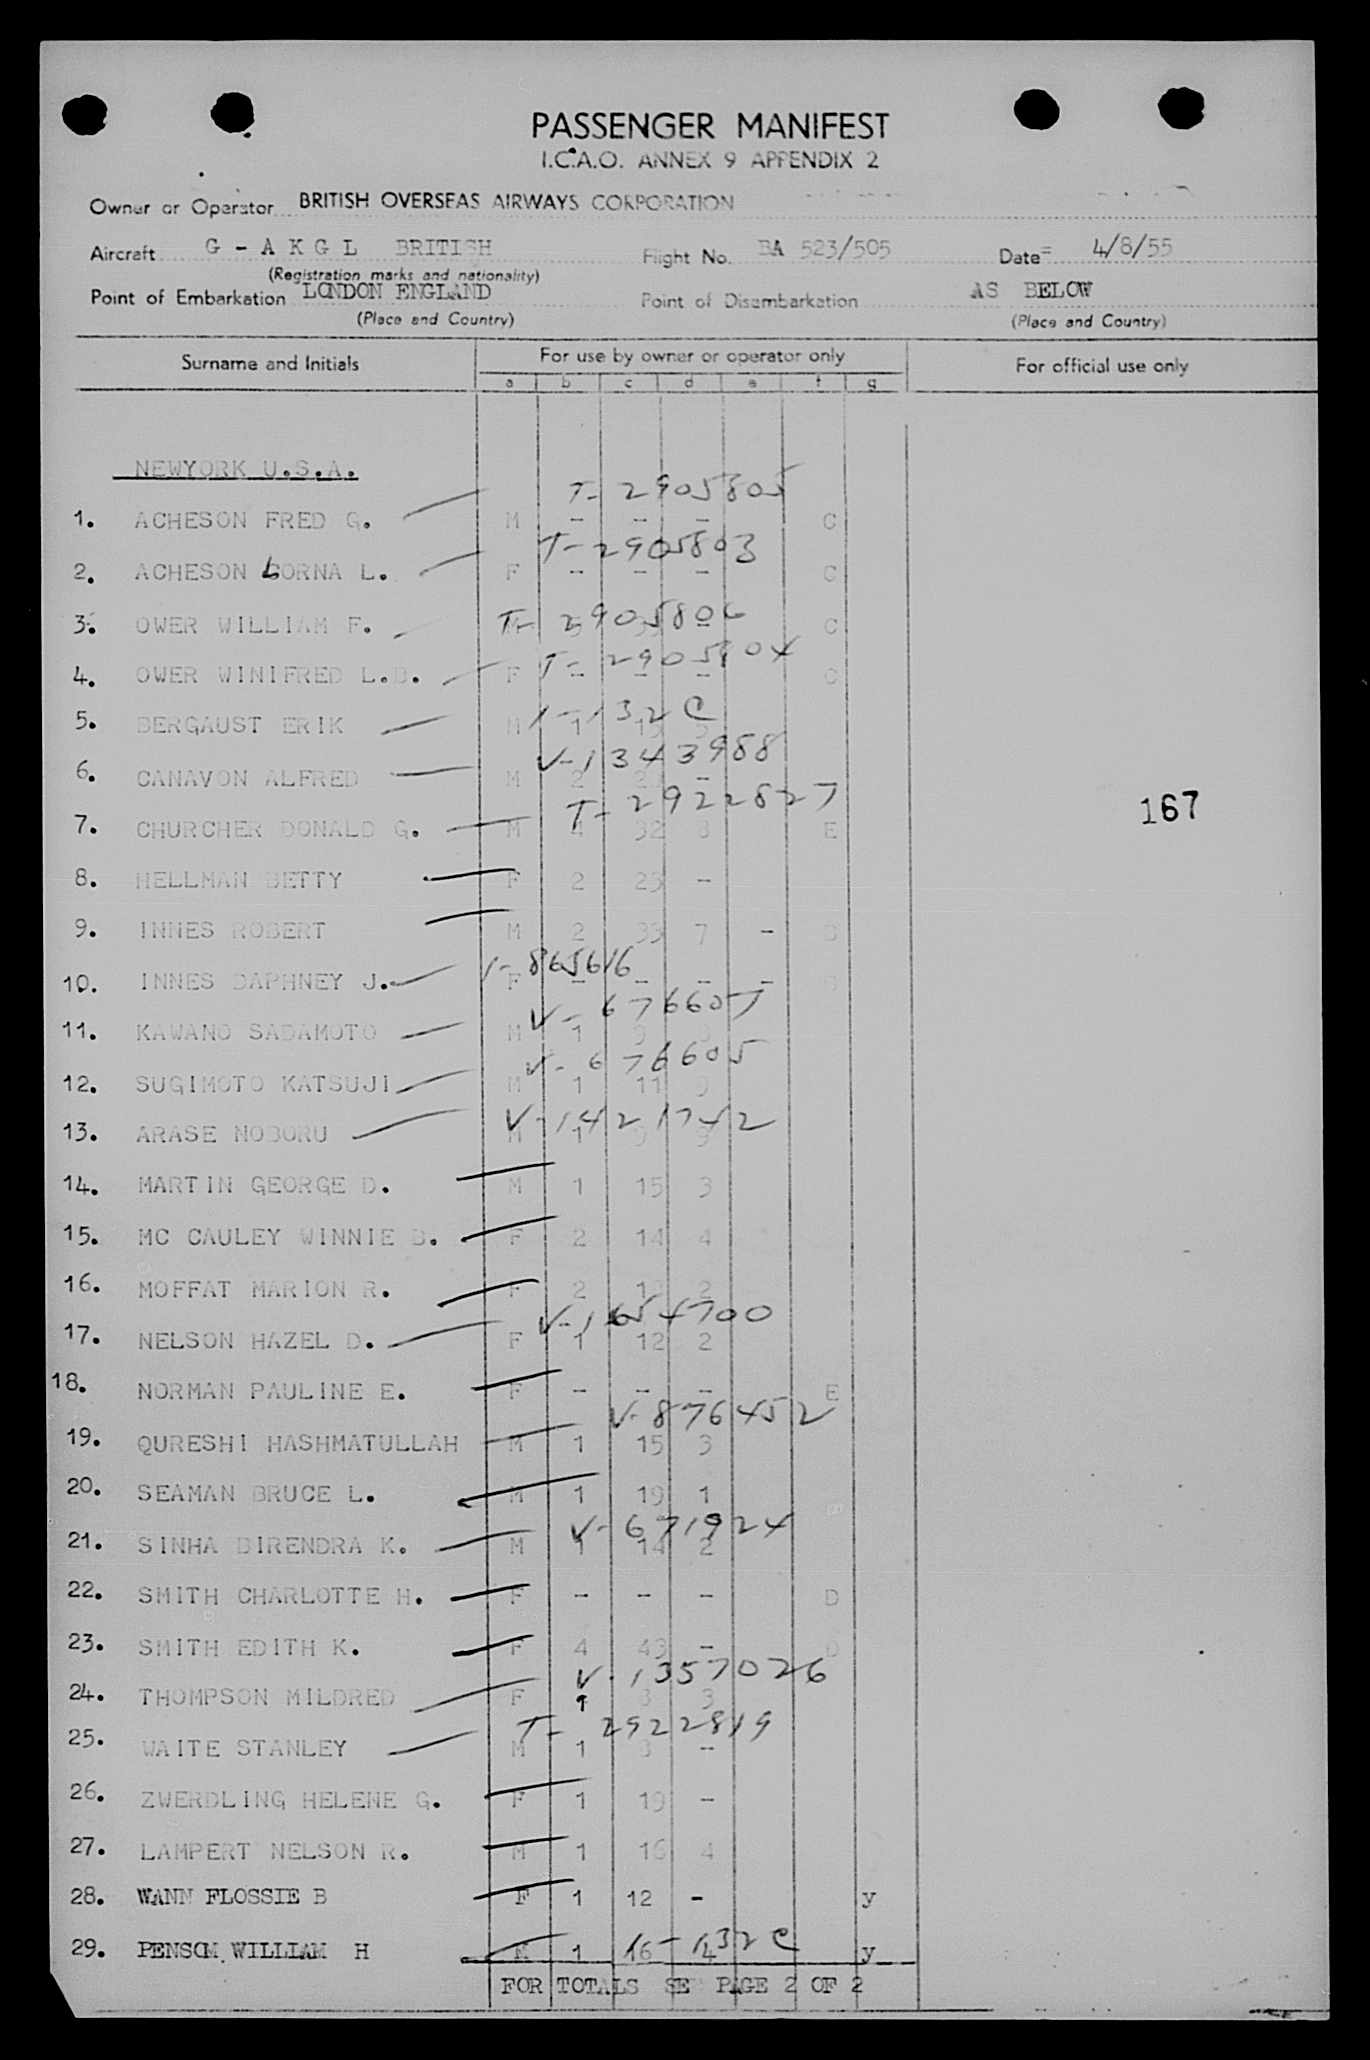 PASSENGER MANIFEST
I.C.A.O. ANNEX 9 APPENDIX 2
Owner or Operator BRITISH OVERSEAS AIRWAYS CORPORATION
Aircraft G - A K G L BRITISH Flight No. BA 523/505 Date 4/8/55
(Registration marks and nationality)
Point of Embarkation LONDON ENGLAND Point of Disembarkation AS BELOW
(Place and Country) (Place and Country)
Surname and Initials For use by owner or operator only For official use only
a b c d e f g
NEWYORK U.S.A.
T- 2905805
1. ACHESON FRED G. M - - - C
T- 2905803
2. ACHESON LORNA L. F - - - C
T- 2905806
3. OWER WILLIAM F. C
T- 2905804
4. OWER WINIFRED L.B. F - - - C
1-132 C
5. BERGAUST ERIK M 1
V-1343988
6. CANAVON ALFRED M 2 -
T- 2922827
7. CHURCHER DONALD G. M 4 32 8 E
8. HELLMAN BETTY F 2 23 -
9. INNES ROBERT M 2 33 7 -
1-865616
10. INNES DAPHNEY J. F - - - -
V- 676607
11. KAWANO SADAMOTO M 1 9
V- 676605
12. SUGIMOTO KATSUJI M 1 11 9
V-1421742
13. ARASE NOBORU M 1 9 9
14. MARTIN GEORGE D. M 1 15 3
15. MC CAULEY WINNIE B. F 2 14 4
16. MOFFAT MARION R. F 2 2
V-1654700
17. NELSON HAZEL D. F 1 12 2
18. NORMAN PAULINE E. F - - - E
V-876452
19. QURESHI HASHMATULLAH M 1 15 3
20. SEAMAN BRUCE L. M 1 19 1
V-671924
21. SINHA BIRENDRA K. M 1 14 2
22. SMITH CHARLOTTE H. F - - - D
23. SMITH EDITH K. F 4 43 - D
V-1357026
24. THOMPSON MILDRED F 9 3 3
T- 2922819
25. WAITE STANLEY M 1 3 -
26. ZWERDLING HELENE G. F 1 19 -
27. LAMPERT NELSON R. M 1 16 4
28. WANN FLOSSIE B F 1 12 - y
29. PENSOM WILLIAM H M 1 16 4 y
1-132 C
FOR TOTALS SE PAGE 2 OF 2
167